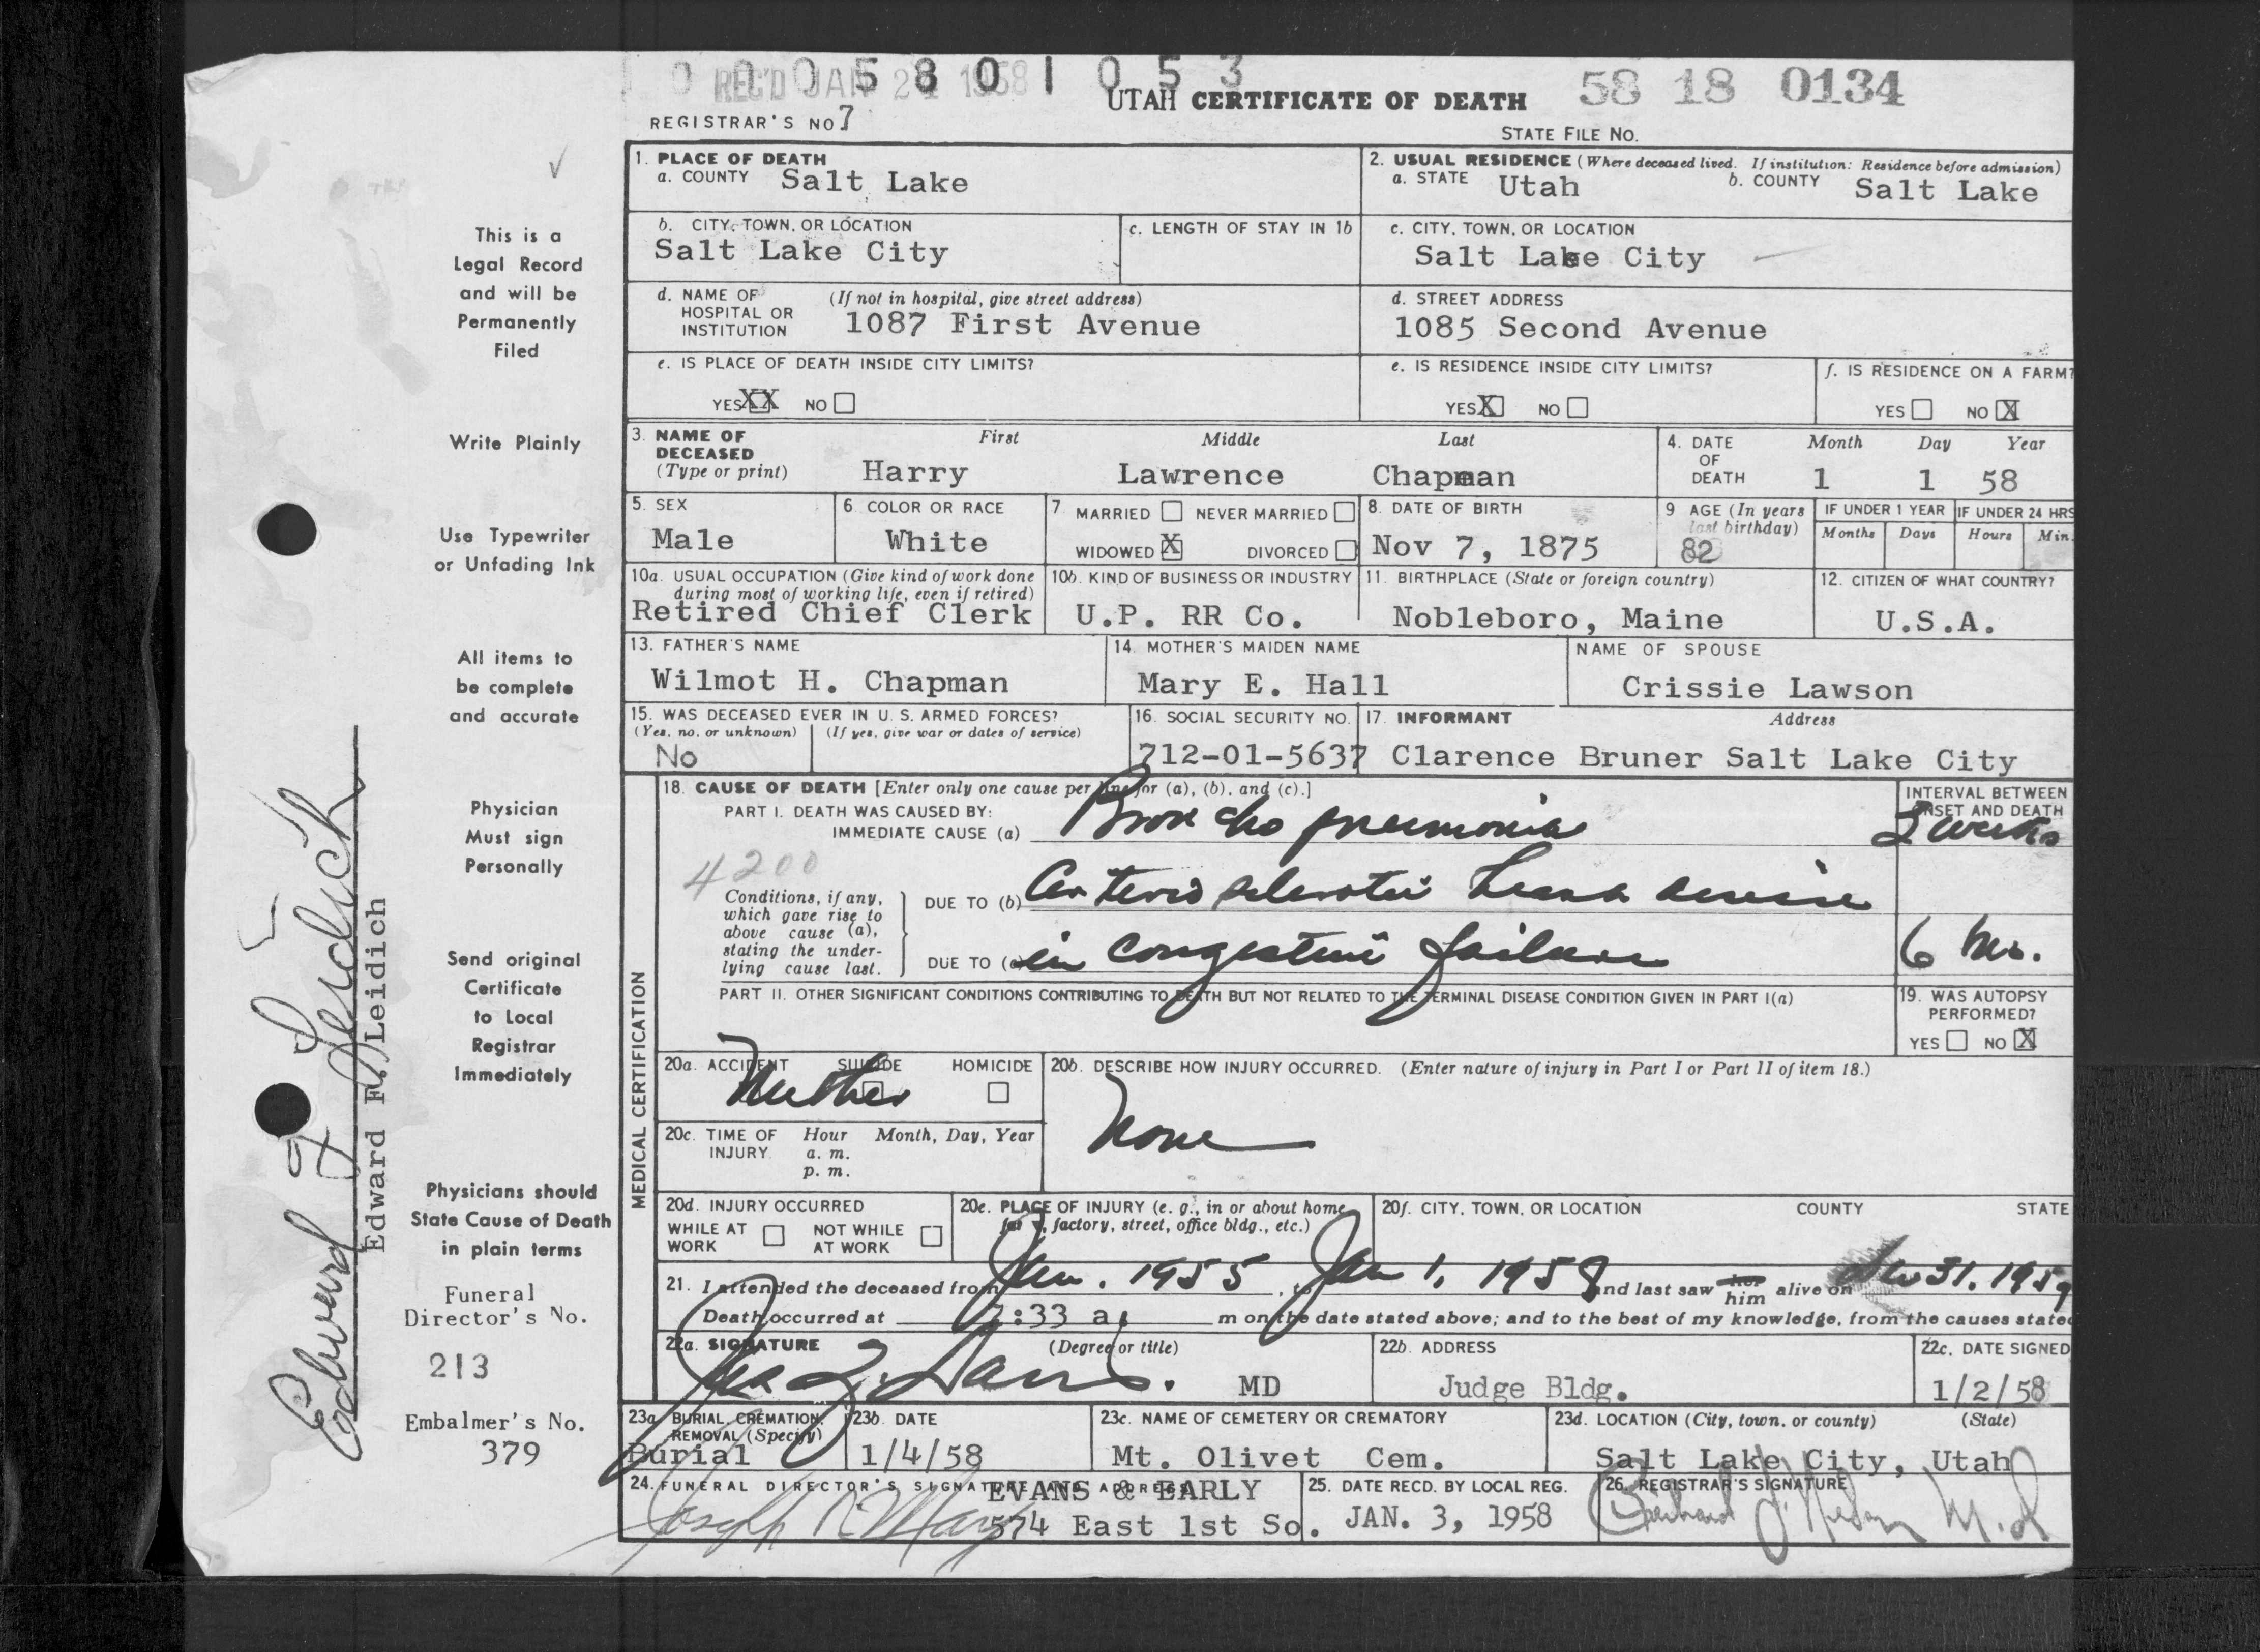 0 0 0 5 8 0 1 0 5 3
REC'D JAN 24 1958
UTAH CERTIFICATE OF DEATH
58 18 0134
REGISTRAR'S NO 7
STATE FILE NO.
1. PLACE OF DEATH
a. COUNTY Salt Lake
2. USUAL RESIDENCE (Where deceased lived. If institution: Residence before admission)
a. STATE Utah b. COUNTY Salt Lake
b. CITY, TOWN, OR LOCATION
Salt Lake City
c. LENGTH OF STAY IN 1b
c. CITY, TOWN, OR LOCATION
Salt Lake City
d. NAME OF HOSPITAL OR INSTITUTION (If not in hospital, give street address)
1087 First Avenue
d. STREET ADDRESS
1085 Second Avenue
e. IS PLACE OF DEATH INSIDE CITY LIMITS?
YES XX NO
e. IS RESIDENCE INSIDE CITY LIMITS?
YES X NO
f. IS RESIDENCE ON A FARM?
YES NO X
3. NAME OF DECEASED (Type or print)
First Middle Last
Harry Lawrence Chapman
4. DATE OF DEATH Month Day Year
1 1 58
5. SEX
Male
6. COLOR OR RACE
White
7 MARRIED NEVER MARRIED
WIDOWED X DIVORCED
8. DATE OF BIRTH
Nov 7, 1875
9 AGE (In years last birthday)
82
IF UNDER 1 YEAR
Months Days
IF UNDER 24 HRS
Hours Min.
10a. USUAL OCCUPATION (Give kind of work done during most of working life, even if retired)
Retired Chief Clerk
10b. KIND OF BUSINESS OR INDUSTRY
U.P. RR Co.
11. BIRTHPLACE (State or foreign country)
Nobleboro, Maine
12. CITIZEN OF WHAT COUNTRY?
U.S.A.
13. FATHER'S NAME
Wilmot H. Chapman
14. MOTHER'S MAIDEN NAME
Mary E. Hall
NAME OF SPOUSE
Crissie Lawson
15. WAS DECEASED EVER IN U. S. ARMED FORCES?
(Yes, no, or unknown) (If yes, give war or dates of service)
No
16. SOCIAL SECURITY NO.
712-01-5637
17. INFORMANT Address
Clarence Bruner Salt Lake City
MEDICAL CERTIFICATION
18. CAUSE OF DEATH [Enter only one cause per line for (a), (b), and (c).]
PART I. DEATH WAS CAUSED BY:
IMMEDIATE CAUSE (a) Broncho pneumonia
INTERVAL BETWEEN ONSET AND DEATH
2 weeks
4200
Conditions, if any, which gave rise to above cause (a), stating the underlying cause last.
DUE TO (b) Arteriosclerotic heart disease
DUE TO (c) in congestive failure
6 mo.
PART II. OTHER SIGNIFICANT CONDITIONS CONTRIBUTING TO DEATH BUT NOT RELATED TO THE TERMINAL DISEASE CONDITION GIVEN IN PART I(a)
19. WAS AUTOPSY PERFORMED?
YES NO X
20a. ACCIDENT SUICIDE HOMICIDE
Neither
20b. DESCRIBE HOW INJURY OCCURRED. (Enter nature of injury in Part I or Part II of item 18.)
None
20c. TIME OF INJURY Hour Month, Day, Year
a. m.
p. m.
20d. INJURY OCCURRED
WHILE AT WORK NOT WHILE AT WORK
20e. PLACE OF INJURY (e. g., in or about home, farm, factory, street, office bldg., etc.)
20f. CITY, TOWN, OR LOCATION COUNTY STATE
21. I attended the deceased from Jan. 1955, to Jan 1, 1958 and last saw her him alive on Dec 31, 1957
Death occurred at :33 a. m on the date stated above; and to the best of my knowledge, from the causes stated
22a. SIGNATURE (Degree or title)
MD
22b. ADDRESS
Judge Bldg.
22c. DATE SIGNED
1/2/58
23a. BURIAL, CREMATION, REMOVAL (Specify)
Burial
23b. DATE
1/4/58
23c. NAME OF CEMETERY OR CREMATORY
Mt. Olivet Cem.
23d. LOCATION (City, town, or county) (State)
Salt Lake City, Utah
24. FUNERAL DIRECTOR'S SIGNATURE AND ADDRESS
EVANS & EARLY
574 East 1st So.
25. DATE RECD. BY LOCAL REG.
JAN. 3, 1958
26. REGISTRAR'S SIGNATURE
This is a
Legal Record
and will be
Permanently
Filed
Write Plainly
Use Typewriter
or Unfading Ink
All items to
be complete
and accurate
Physician
Must sign
Personally
Send original
Certificate
to Local
Registrar
Immediately
Physicians should
State Cause of Death
in plain terms
Funeral
Director's No.
213
Embalmer's No.
379
Edward F Leidich
Edward F. Leidich